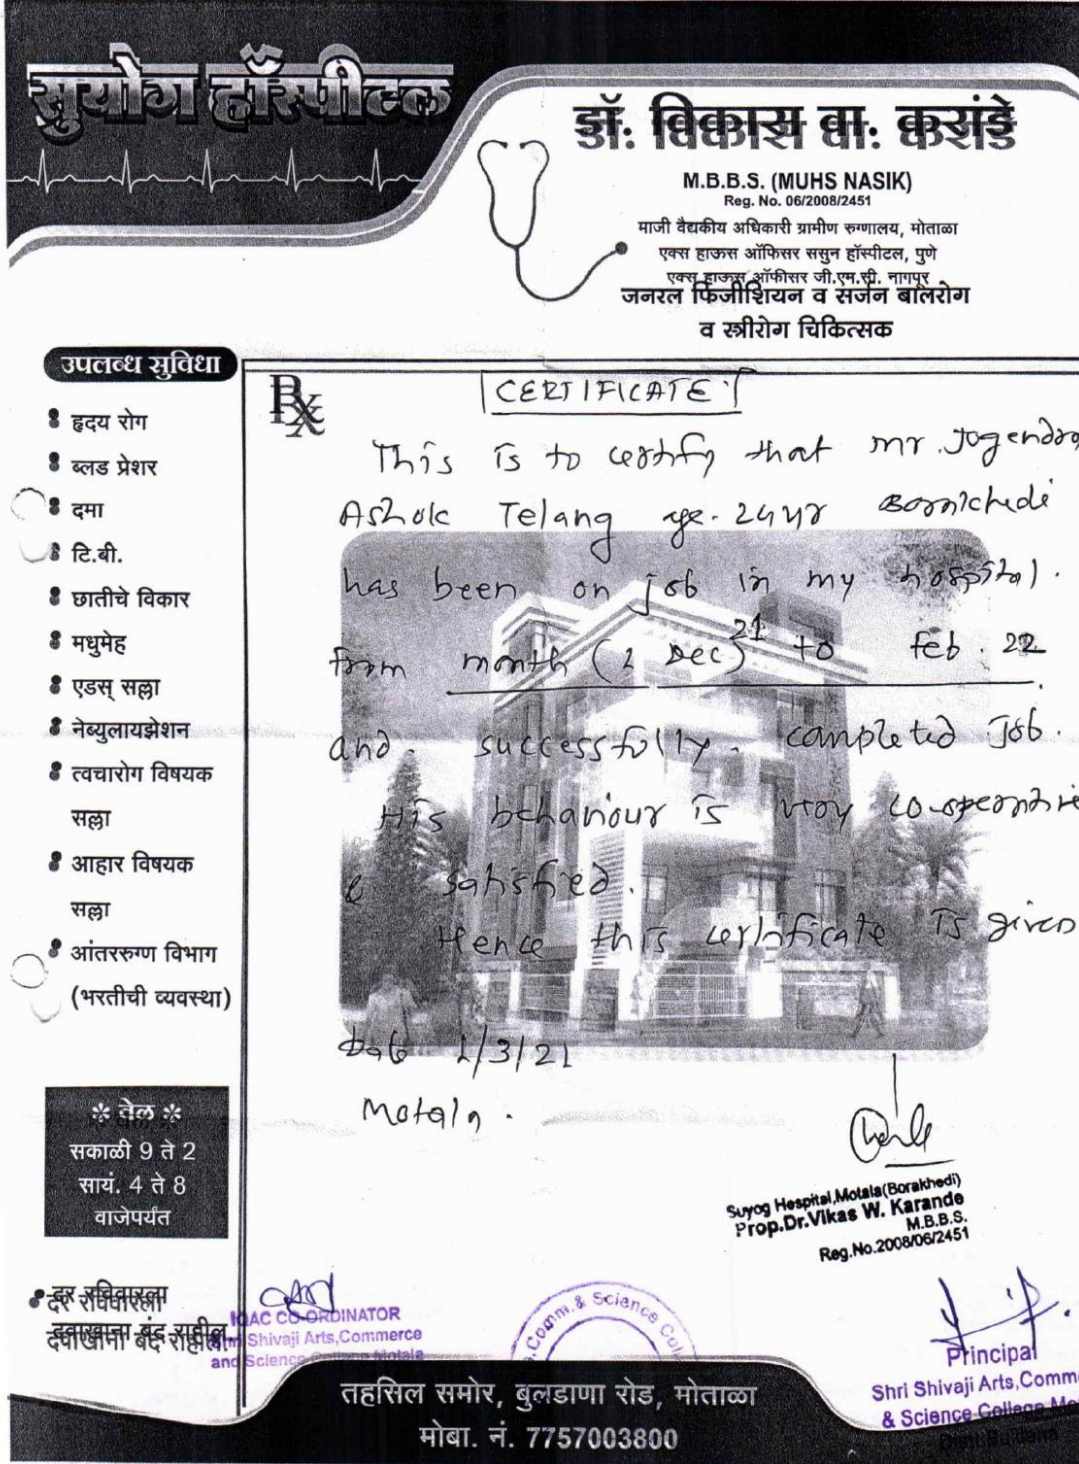 सुयोग हॉस्पीटल
डॉ. विकास वा. करांडे
M.B.B.S. (MUHS NASIK)
Reg. No. 06/2008/2451
माजी वैद्यकीय अधिकारी ग्रामीण रुग्णालय, मोताळा
एक्स हाऊस ऑफिसर ससुन हॉस्पीटल, पुणे
एक्स हाऊस ऑफीसर जी.एम.सी. नागपूर
जनरल फिजीशियन व सर्जन बालरोग
व स्त्रीरोग चिकित्सक
उपलब्ध सुविधा
हृदय रोग
ब्लड प्रेशर
दमा
टि.बी.
छातीचे विकार
मधुमेह
एडस् सल्ला
नेब्युलायझेशन
त्वचारोग विषयक
सल्ला
आहार विषयक
सल्ला
आंतररुग्ण विभाग
(भरतीची व्यवस्था)
* वेळ *
सकाळी 9 ते 2
सायं. 4 ते 8
वाजेपर्यंत
दर रविवारला
दवाखाना बंद राहील.
Rx
CERTIFICATE
This is to certify that mr. Jogendra
Ashok Telang age. 24 yr
has been on job in my hospital.
from month (1 Dec) 21 to feb. 22
and. successfully. completed Job.
His behaviour is very co-operative
& satisfied.
Hence this certificate is given
Date 1/3/21
Motala.
Suyog Hospital,Motala(Borakhedi)
Prop.Dr.Vikas W. Karande
M.B.B.S.
Reg.No.2008/06/2451
IQAC CO-ORDINATOR
Shri Shivaji Arts,Commerce
and Science College Motala
Comm.& Science
Principal
Shri Shivaji Arts,Comm
& Science College
Dist.Buldana
तहसिल समोर, बुलडाणा रोड, मोताळा
मोबा. नं. 7757003800